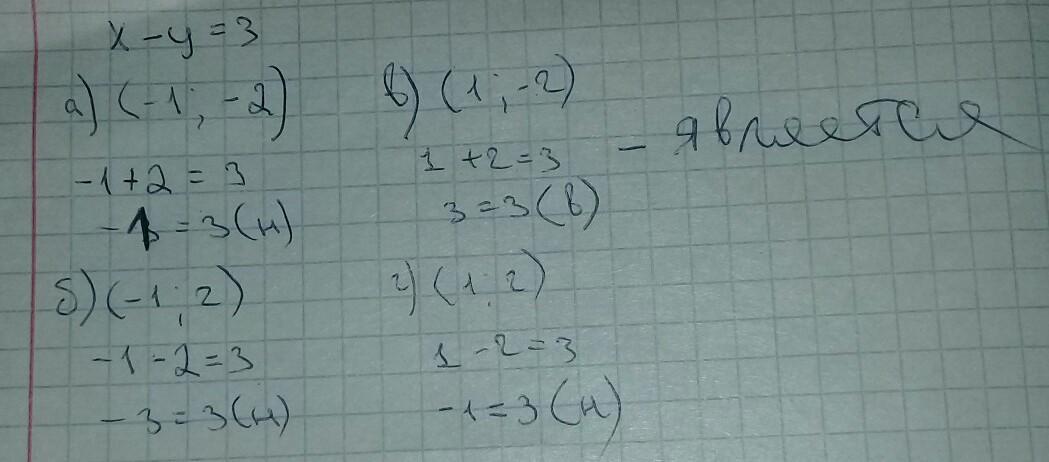 x - y = 3
а) (-1; -2)
-1 + 2 = 3
-1 = 3 (н)
б) (-1; 2)
-1 - 2 = 3
-3 = 3 (н)
в) (1; -2)
1 + 2 = 3 - является
3 = 3 (в)
г) (1; 2)
1 - 2 = 3
-1 = 3 (н)